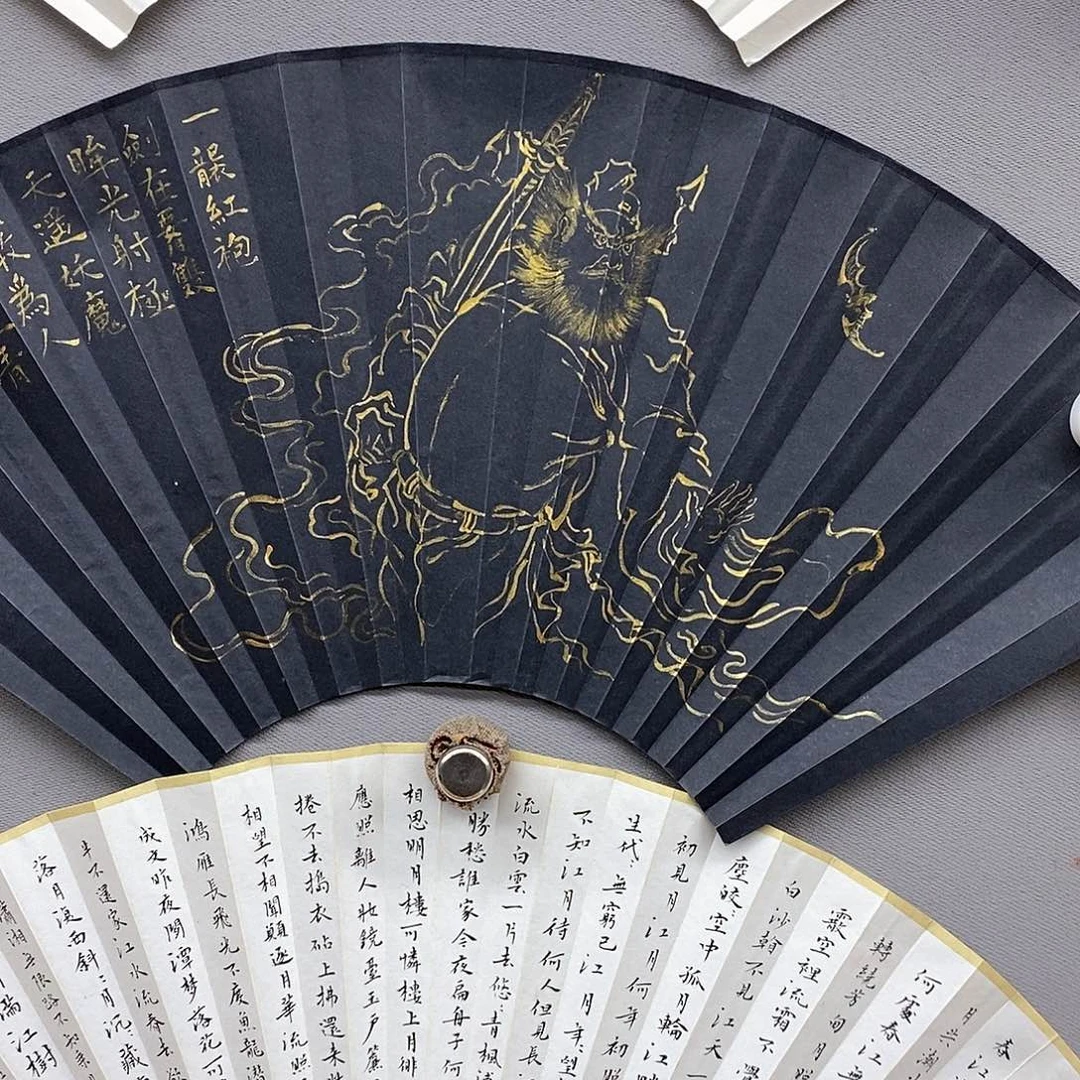 一襲紅袍
劍在要雙
眸光射極
天遥妖魔
為人
春江
月共
何處春江無
轉繞芳甸月
霰空裡流霜不
白沙看不見江天一
塵皎〻空中孤月輪江
初見月江月何年初照
生代〻無窮已江月年望
不知江月待何人但見長
流水白雲一片去悠〻青楓
勝愁誰家今夜扁舟子何
相思明月樓可憐樓上月徘
應照離人妝鏡臺玉戶簾
捲不去搗衣砧上拂還来
相望不相聞願逐月華流照
鴻雁長飛光不度魚龍潛
成文昨夜閑潭夢落花可
半不還家江水流春去
落月復西斜〻月沉藏
瀟湘無限路不知乘月
滿江樹